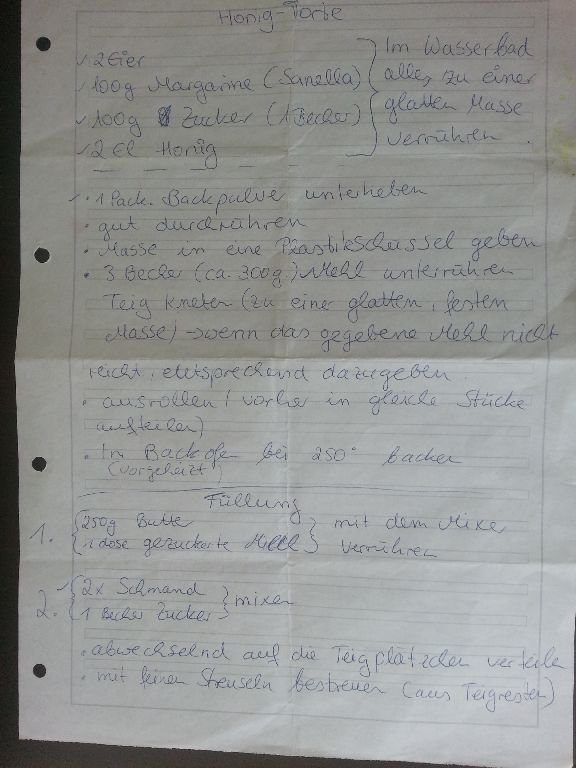 Honig-Torte
✓ 2 Eier
✓ 100g Margarine (Sanella)
✓ 100g Zucker (1 Becher)
✓ 2 El Honig
Im Wasserbad
alles zu einer
glatten Masse
verrühren.
✓ • 1 Pack. Backpulver unterheben
• gut durchrühren
• Masse in eine Plastikschüssel geben
• 3 Becher (ca. 300g) Mehl unterrühren
Teig kneten (zu einer glatten, festen
Masse) → wenn das gegebene Mehl nicht
reicht, entsprechend dazugeben.
• ausrollen (vorher in gleiche Stücke
aufteilen)
• Im Backofen bei 250° backen
(vorgeheizt)
Füllung
1. { 250g Butter
1 dose gezuckerte Milch } mit dem Mixer
verrühren
2. { 2x Schmand
1 Becher Zucker } mixen
• abwechselnd auf die Teigplätzchen verteilen
• mit feinen Streuseln bestreuen (aus Teigresten)